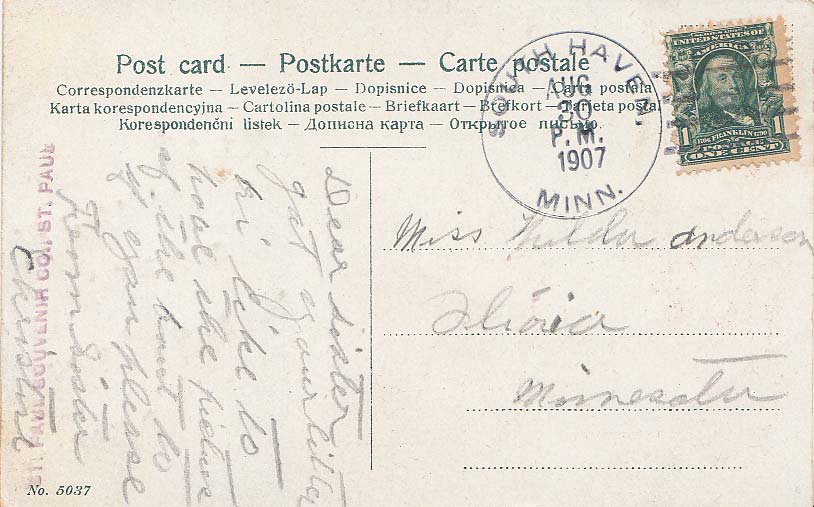 Post card — Postkarte — Carte postale
Correspondenzkarte — Levelezö-Lap — Dopisnice — Dopisnica — Carta postala
Karta korespondencyjna — Cartolina postale — Briefkaart — Brefkort — Tarjeta postal
Korespondenčni listek — Дописна карта — Открытое письмо.
SOUTH HAVEN,
AUG
30
P. M.
1907
MINN.
UNITED STATES OF
FRANKLIN
1 1
POSTAGE
ONE CENT
Miss Hilda Anderson
Minnesota
Dear sister
gat your litter
ki like to
have the picture
of the boat to
if you please
from sister
Christine
ST. PAUL SOUVENIR CO., ST. PAUL
No. 5037